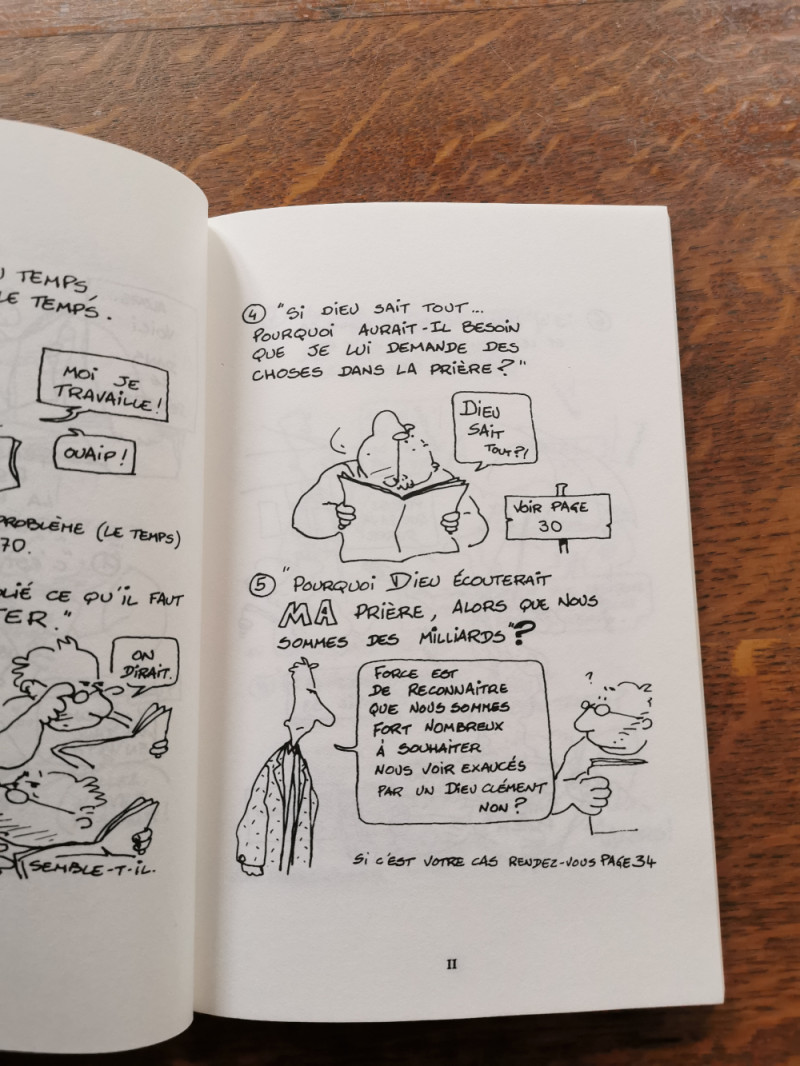 TEMPS,
LE TEMPS.
MOI JE
TRAVAILLE!
OUAIP!
PROBLÈME (LE TEMPS)
70.
CE QU'IL FAUT
ON
DIRAIT.
SEMBLE-T-IL.
④ "SI DIEU SAIT TOUT...
POURQUOI AURAIT-IL BESOIN
QUE JE LUI DEMANDE DES
CHOSES DANS LA PRIÈRE?"
DIEU
SAIT
TOUT?!
VOIR PAGE
30
⑤ "POURQUOI DIEU ÉCOUTERAIT
MA PRIÈRE, ALORS QUE NOUS
SOMMES DES MILLIARDS"?
FORCE EST
DE RECONNAITRE
QUE NOUS SOMMES
FORT NOMBREUX
À SOUHAITER
NOUS VOIR EXAUCÉS
PAR UN DIEU CLÉMENT
NON?
?
SI C'EST VOTRE CAS RENDEZ-VOUS PAGE 34
II